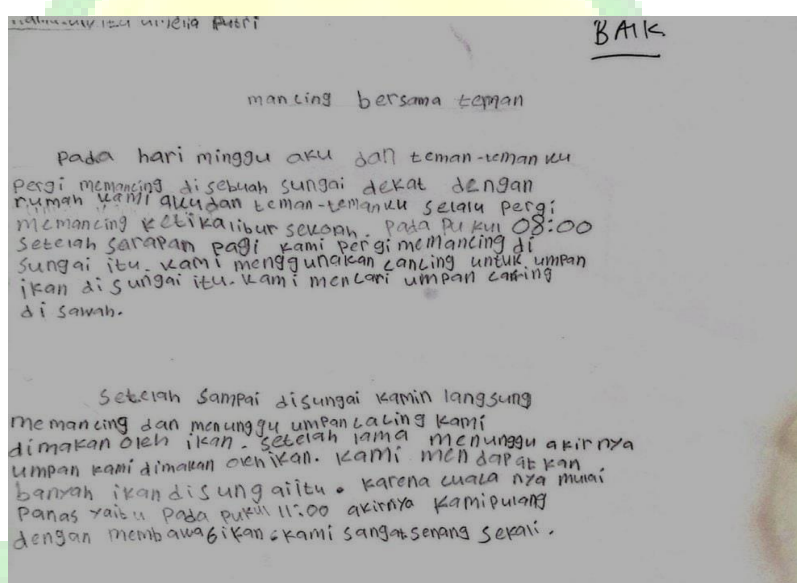 Putri
BAIK
mancing bersama teman
Pada hari minggu aku dan teman-teman ku
pergi memancing disebuah sungai dekat dengan
rumah kami akudan teman-temanku selalu pergi
memancing ketikalibur sekolah. Pada Pukul 08:00
setelah sarapan pagi kami pergi memancing di
sungai itu. kami menggunakan cancing untuk umpan
ikan di sungai itu. kami mencari umpan
di sawah.
Setelah sampai disungai kamin langsung
memancing dan menunggu umpan cacing kami
dimakan oleh ikan. setelah lama menunggu akirnya
umpan kami dimakan oleh ikan. kami mendapatkan
banyah ikan disungaiitu. karena cuaca nya mulai
panas yaitu pada pukul 11:00 akirnya kamipulang
dengan ikan. kami sangatsenang sekali.